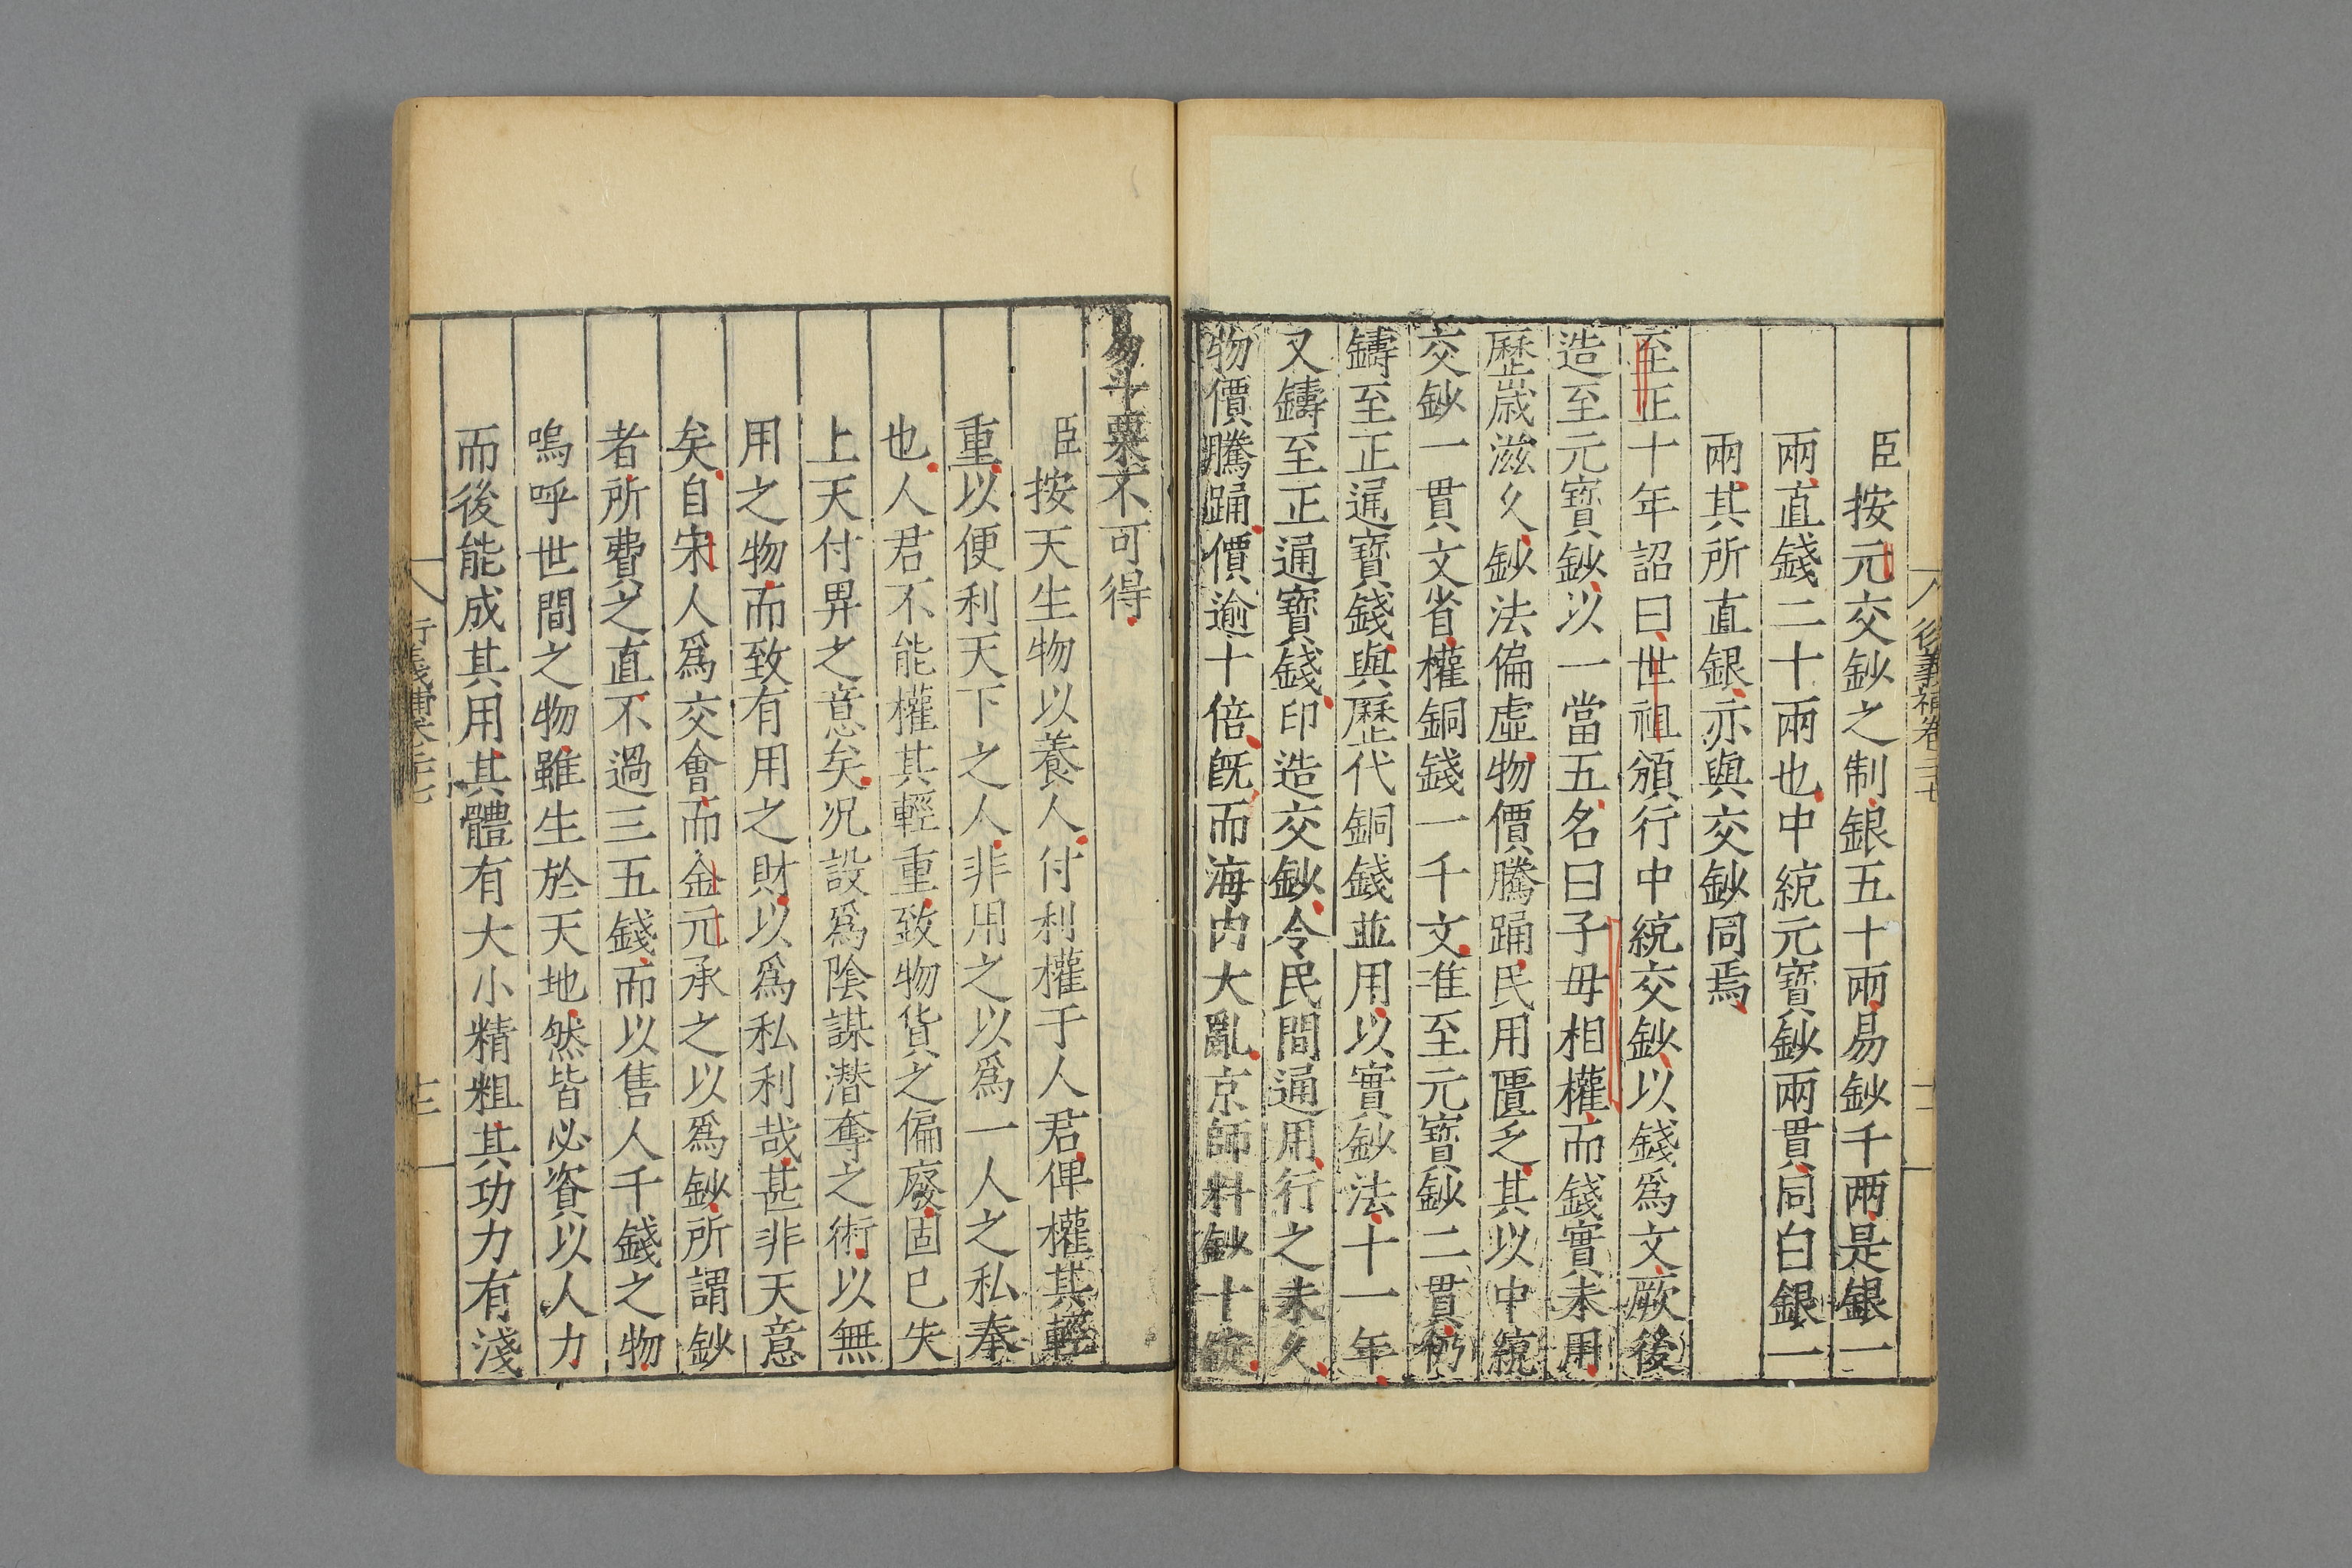 臣按元交鈔之制銀五十兩易鈔千兩是銀一
兩直錢二十兩也中統元寶鈔兩貫同白銀一
兩其所直銀亦與交鈔同焉
至正十年詔曰世祖頒行中統交鈔以錢爲文厥後
造至元寶鈔以一當五名曰子母相權而錢實未用
歷歲滋久鈔法偏虛物價騰踊民用匱乏其以中統
交鈔一貫文省權銅錢一千文准至元寶鈔二貫仍
鑄至正通寶錢與歷代銅錢並用以實鈔法十一年
又鑄至正通寶錢印造交鈔令民間通用行之未久
物價騰踊價逾十倍旣而海內大亂京師料鈔十錠
易斗粟不可得
臣按天生物以養人付利權于人君俾權其輕
重以便利天下之人非用之以爲一人之私奉
也人君不能權其輕重致物貨之偏廢固已失
上天付畀之意矣况設爲陰謀潛奪之術以無
用之物而致有用之財以爲私利哉甚非天意
矣自宋人爲交會而金元承之以爲鈔所謂鈔
者所費之直不過三五錢而以售人千錢之物
嗚呼世間之物雖生於天地然皆必資以人力
而後能成其用其體有大小精粗其功力有淺
行義補卷二十七
十三